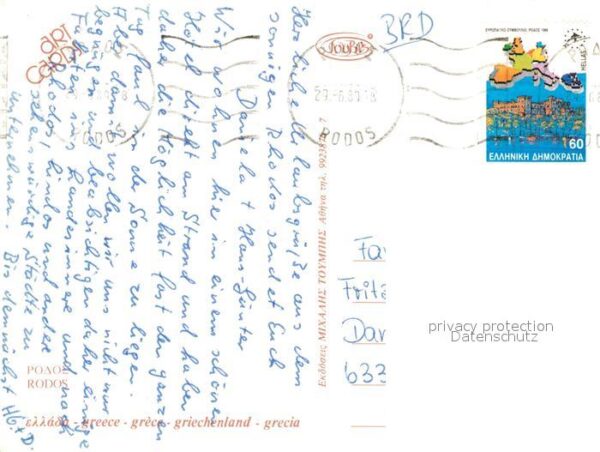 Herzlichste Urlaubsgrüße aus dem
sonnigen Rhodos sendet Euch
Daniela + Hans-Günter
Wir wohnen hier in einem schönen
Hotel direkt am Strand und haben
daher die Möglichkeit fast den ganzen
Tag faul in der Sonne zu liegen.
Aber dann wollen wir uns nicht nur
begnügen und beabsichtigen daher einige
Fahrten ins Landesinnere und nach
Rhodos, Lindos und andere
sehenswürdige Städte zu
unternehmen. Bis demnächst HG+D.
art
cards
ΡΟΔΟΣ
RODOS
ελλάδα - greece - grèce - griechenland - grecia
Εκδόσεις ΜΙΧΑΛΗΣ ΤΟΥΜΠΗΣ Αθήνα τηλ. 9923874
BRD
29.-6.89.-8
RODOS
ΕΥΡΩΠΑΪΚΟ ΣΥΜΒΟΥΛΙΟ ΡΟΔΟΣ 1988
HELLAS
60
ΕΛΛΗΝΙΚΗ ΔΗΜΟΚΡΑΤΙΑ
Fa
Fritz
Dar
633
privacy protection
Datenschutz